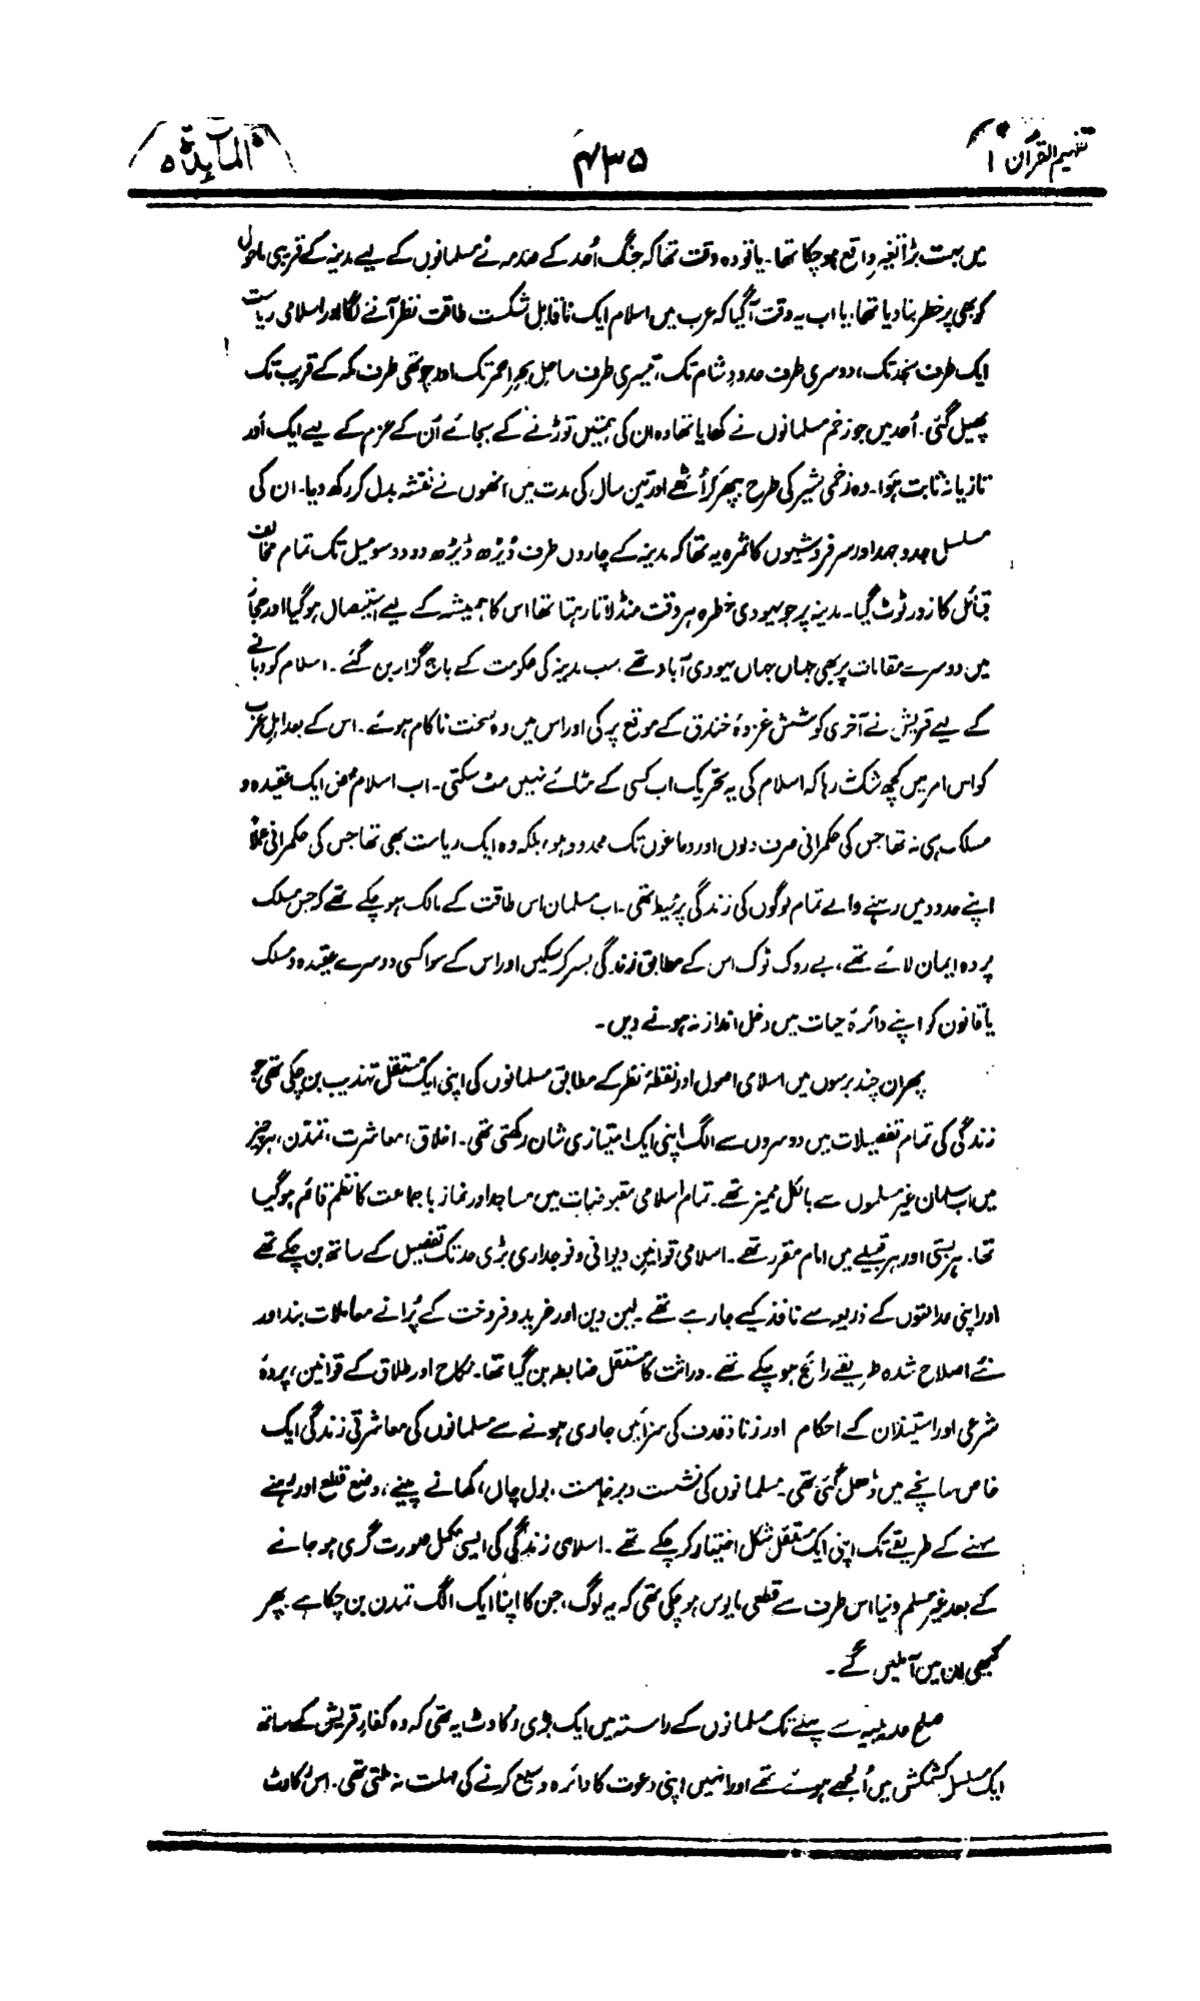 تفہیم القرآن ۱
۴۳۵
المآئدۃ ۵
میں بہت بڑا تغیر واقع ہو چکا تھا۔ یا تو وہ وقت تھا کہ جنگ اُحد کے صدمہ نے مسلمانوں کے لیے مدینہ کے قریبی ماحول
کو بھی پُر خطر بنا دیا تھا، یا اب یہ وقت آگیا کہ عرب میں اسلام ایک ناقابلِ شکست طاقت نظر آنے لگا اور اسلامی ریاست
ایک طرف نجد تک، دوسری طرف حدودِ شام تک، تیسری طرف ساحل بحرِ احمر تک اور چوتھی طرف مکہ کے قریب تک
پھیل گئی۔ اُحد میں جو زخم مسلمانوں نے کھایا تھا وہ ان کی ہمتیں توڑنے کے بجائے اُن کے عزم کے لیے ایک اَور
تازیانہ ثابت ہُوا۔ وہ زخمی شیر کی طرح بپھر کر اُٹھے اور تین سال کی مدت میں انھوں نے نقشہ بدل کر رکھ دیا۔ ان کی
مسلسل جدوجہد اور سرفروشیوں کا ثمرہ یہ تھا کہ مدینہ کے چاروں طرف ڈیڑھ ڈیڑھ دو دو سو میل تک تمام مخالف
قبائل کا زور ٹوٹ گیا۔ مدینہ پر جو یہودی خطرہ ہر وقت منڈلاتا رہتا تھا اس کا ہمیشہ کے لیے استیصال ہو گیا اور حجاز
میں دوسرے مقامات پر بھی جہاں جہاں یہودی آباد تھے، سب مدینہ کی حکومت کے باج گزار بن گئے۔ اسلام کو دبانے
کے لیے قریش نے آخری کوشش غزوۂ خندق کے موقع پر کی اور اس میں وہ سخت ناکام ہوئے۔ اس کے بعد اہلِ عرب
کو اس امر میں کچھ شک نہ رہا کہ اسلام کی یہ تحریک اب کسی کے مٹائے نہیں مٹ سکتی۔ اب اسلام محض ایک عقیدہ و
مسلک ہی نہ تھا جس کی حکمرانی صرف دلوں اور دماغوں تک محدود ہو، بلکہ وہ ایک ریاست بھی تھا جس کی حکمرانی عملاً
اپنے حدود میں رہنے والے تمام لوگوں کی زندگی پر محیط تھی۔ اب مسلمان اس طاقت کے مالک ہو چکے تھے کہ جس مسلک
پر وہ ایمان لائے تھے، بے روک ٹوک اس کے مطابق زندگی بسر کر سکیں اور اس کے سوا کسی دوسرے عقیدہ و مسلک
یا قانون کو اپنے دائرۂ حیات میں دخل انداز نہ ہونے دیں۔
پھر ان چند برسوں میں اسلامی اصول اور نقطۂ نظر کے مطابق مسلمانوں کی اپنی ایک مستقل تہذیب بن چکی تھی جو
زندگی کی تمام تفصیلات میں دوسروں سے الگ اپنی ایک امتیازی شان رکھتی تھی۔ اخلاق، معاشرت، تمدّن، ہر چیز
میں اب مسلمان غیر مسلموں سے بالکل ممیز تھے۔ تمام اسلامی مقبوضات میں مساجد اور نماز با جماعت کا نظم قائم ہو گیا
تھا۔ ہر بستی اور ہر قبیلے میں امام مقرر تھے۔ اسلامی قوانین دیوانی و فوجداری بڑی حد تک تفصیل کے ساتھ بن چکے تھے
اور اپنی عدالتوں کے ذریعہ سے نافذ کیے جا رہے تھے۔ لین دین اور خرید و فروخت کے پُرانے معاملات بند اور
نئے اصلاح شدہ طریقے رائج ہو چکے تھے۔ وراثت کا مستقل ضابطہ بن گیا تھا۔ نکاح اور طلاق کے قوانین، پردۂ
شرعی اور استیذان کے احکام اور زنا و قذف کی سزائیں جاری ہونے سے مسلمانوں کی معاشرتی زندگی ایک
خاص سانچے میں ڈھل گئی تھی۔ مسلمانوں کی نشست و برخاست، بول چال، کھانے پینے، وضع قطع اور رہنے
سہنے کے طریقے تک اپنی ایک مستقل شکل اختیار کر چکے تھے۔ اسلامی زندگی کی ایسی مکمل صورت گری ہو جانے
کے بعد غیر مسلم دنیا اس طرف سے قطعی مایوس ہو چکی تھی کہ یہ لوگ، جن کا اپنا ایک الگ تمدن بن چکا ہے، پھر
کبھی ان میں آ ملیں گے۔
صلح حدیبیہ سے پہلے تک مسلمانوں کے راستہ میں ایک بڑی رکاوٹ یہ تھی کہ وہ کفارِ قریش کے ساتھ
ایک مسلسل کشمکش میں اُلجھے ہوئے تھے اور انہیں اپنی دعوت کا دائرہ وسیع کرنے کی مہلت نہ ملتی تھی۔ اس رکاوٹ